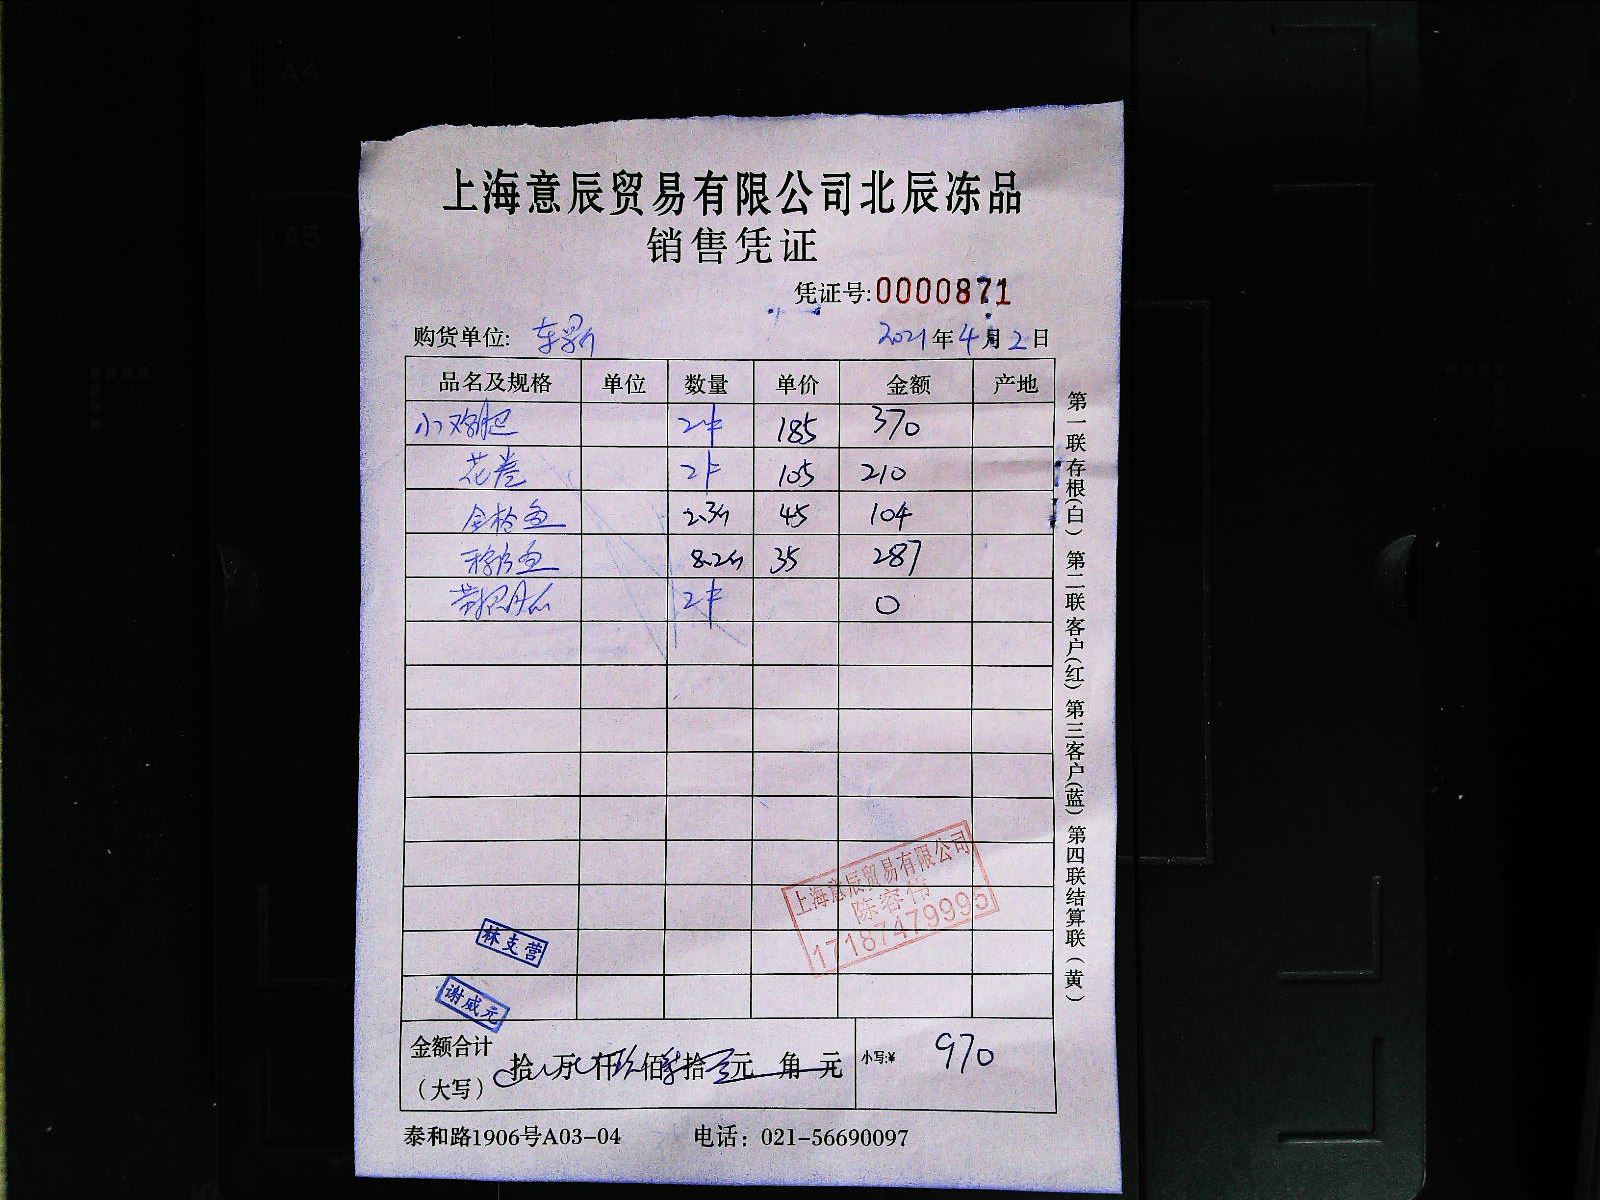 上海意辰贸易有限公司北辰冻品
销售凭证
凭证号:0000871
购货单位:
2021年4月2日
品名及规格 单位 数量 单价 金额 产地
小鸡腿 2件 185 370
花卷 2件 105 210
金枪鱼 2.3斤 45 104
鱼 8.2斤 35 287
2件 0
上海意辰贸易有限公司
陈容伟
17187479995
林支营
谢威元
金额合计(大写) 拾万仟玖佰柒拾元角元 小写:¥ 970
泰和路1906号A03-04 电话：021-56690097
第一联存根(白) 第二联客户(红) 第三客户(蓝) 第四联结算联(黄)
A4
A5